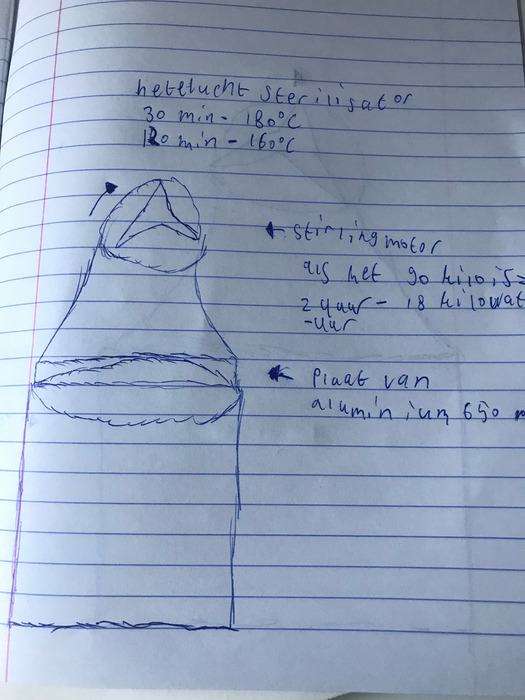 hetelucht sterilisator
30 min - 180°C
120 min - 160°C
stirlingmotor
als het 90 kilo is =
2 4 uur - 18 kilowat
-uur
Plaat van
aluminium 650 m